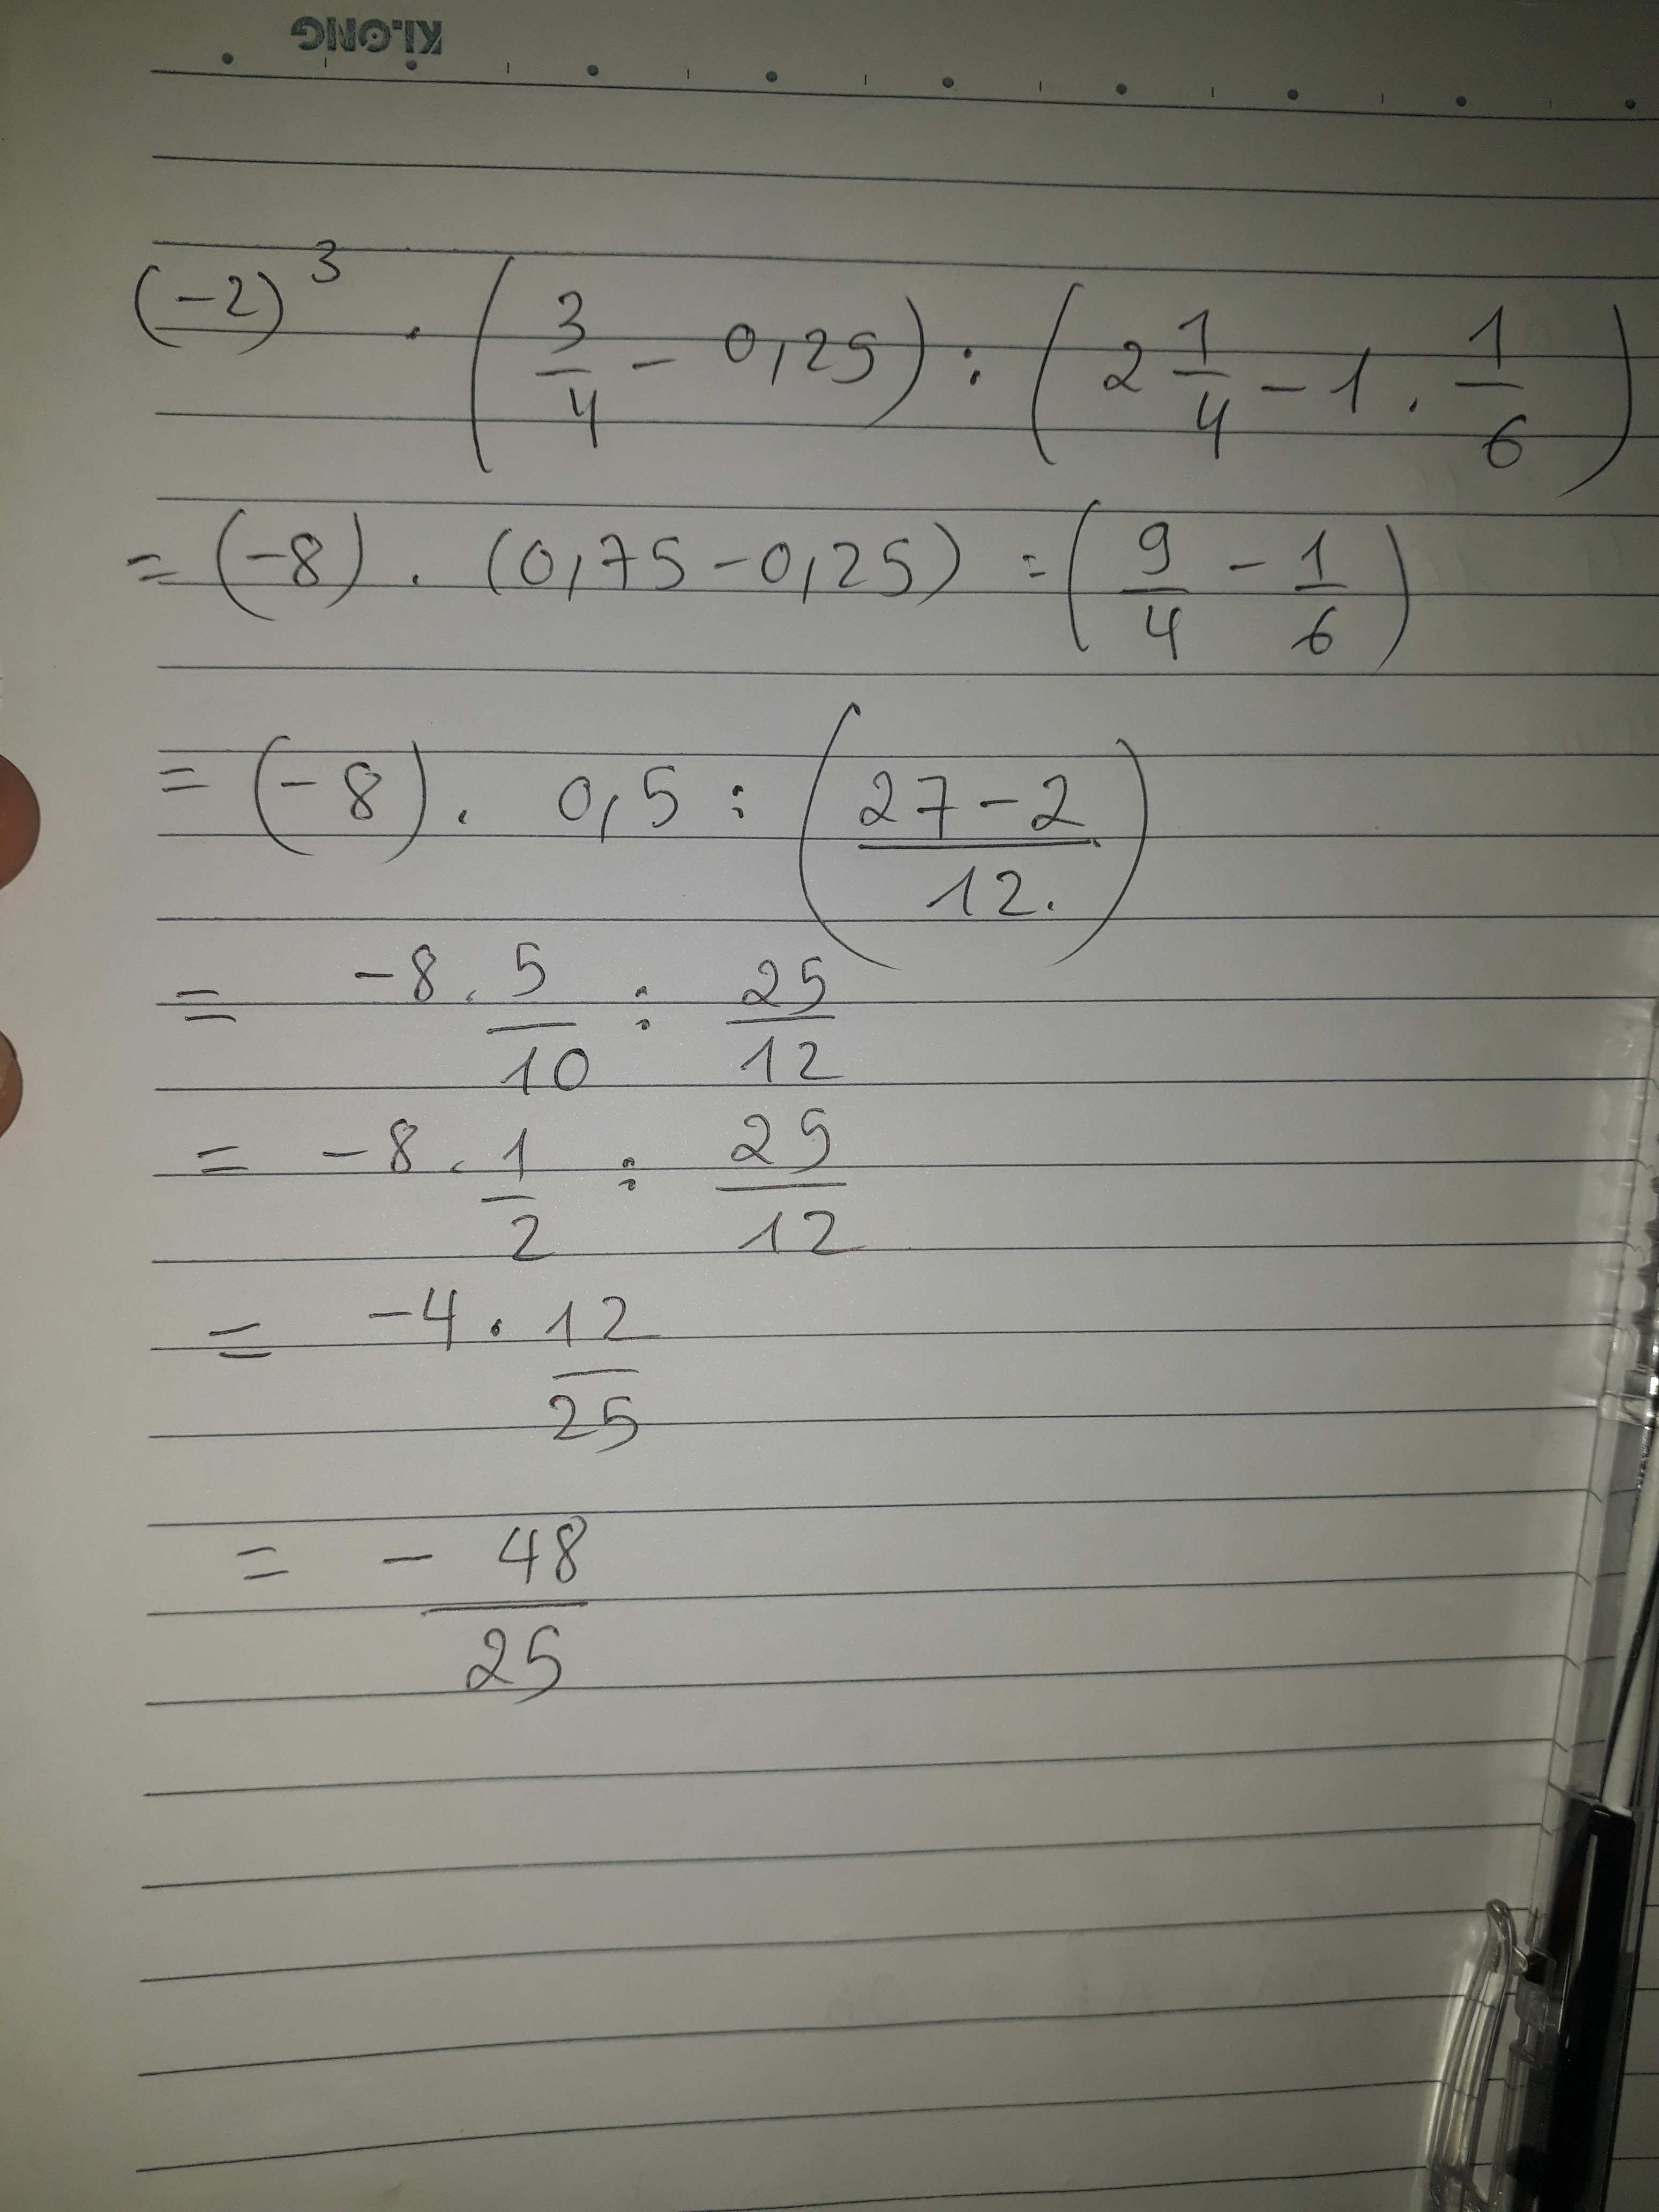 KLONG
(-2)^3 . (3/4 - 0,25) : (2 1/4 - 1 . 1/6)
= (-8) . (0,75 - 0,25) = (9/4 - 1/6)
= (-8) . 0,5 : ((27 - 2)/12.)
= -8 . 5/10 : 25/12
= -8 . 1/2 : 25/12
= -4 . 12/25
= - 48/25